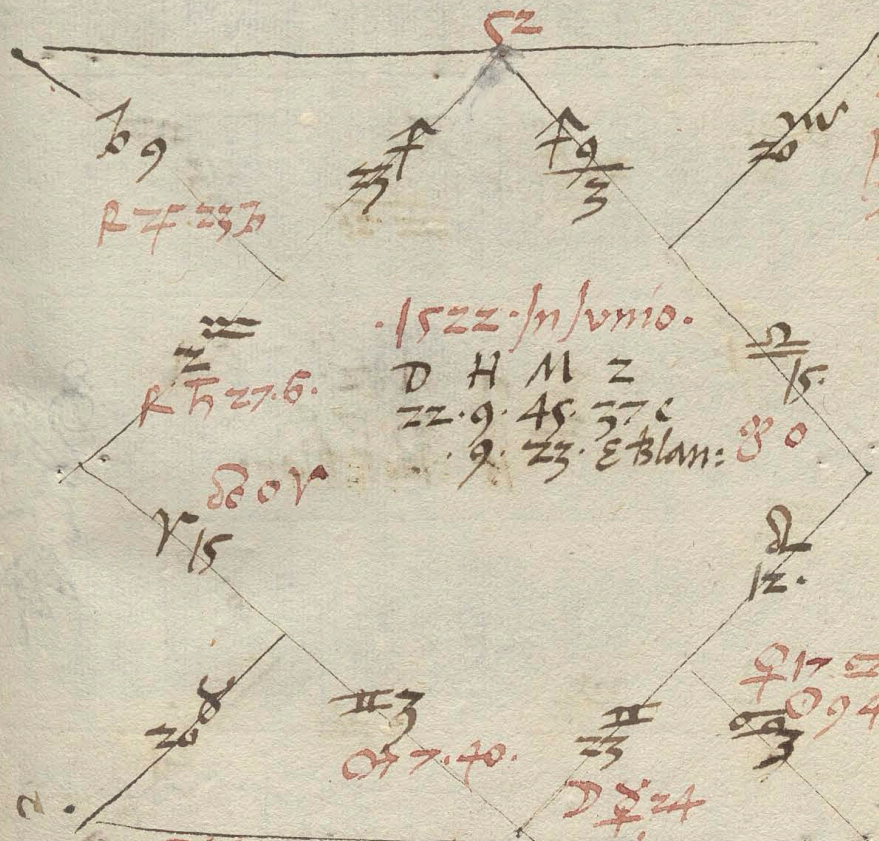 52
♑ 9
R ♃ 23
♐
23
♐ 9
3
♏
20
♒
2
R ♄ 27. 6.
· 1522 · Jn Junio ·
D H M Z
22 · 9 · 45 · 37
· 9 · 23 · E Blan:
0
♎
15.
0 ♈
♈ 15
♌
12.
♉
20
♊ 3
7 · 40 ·
♊
23
☽ ☿ 24
♀ 17
☉ 9 4
♋
3
2.